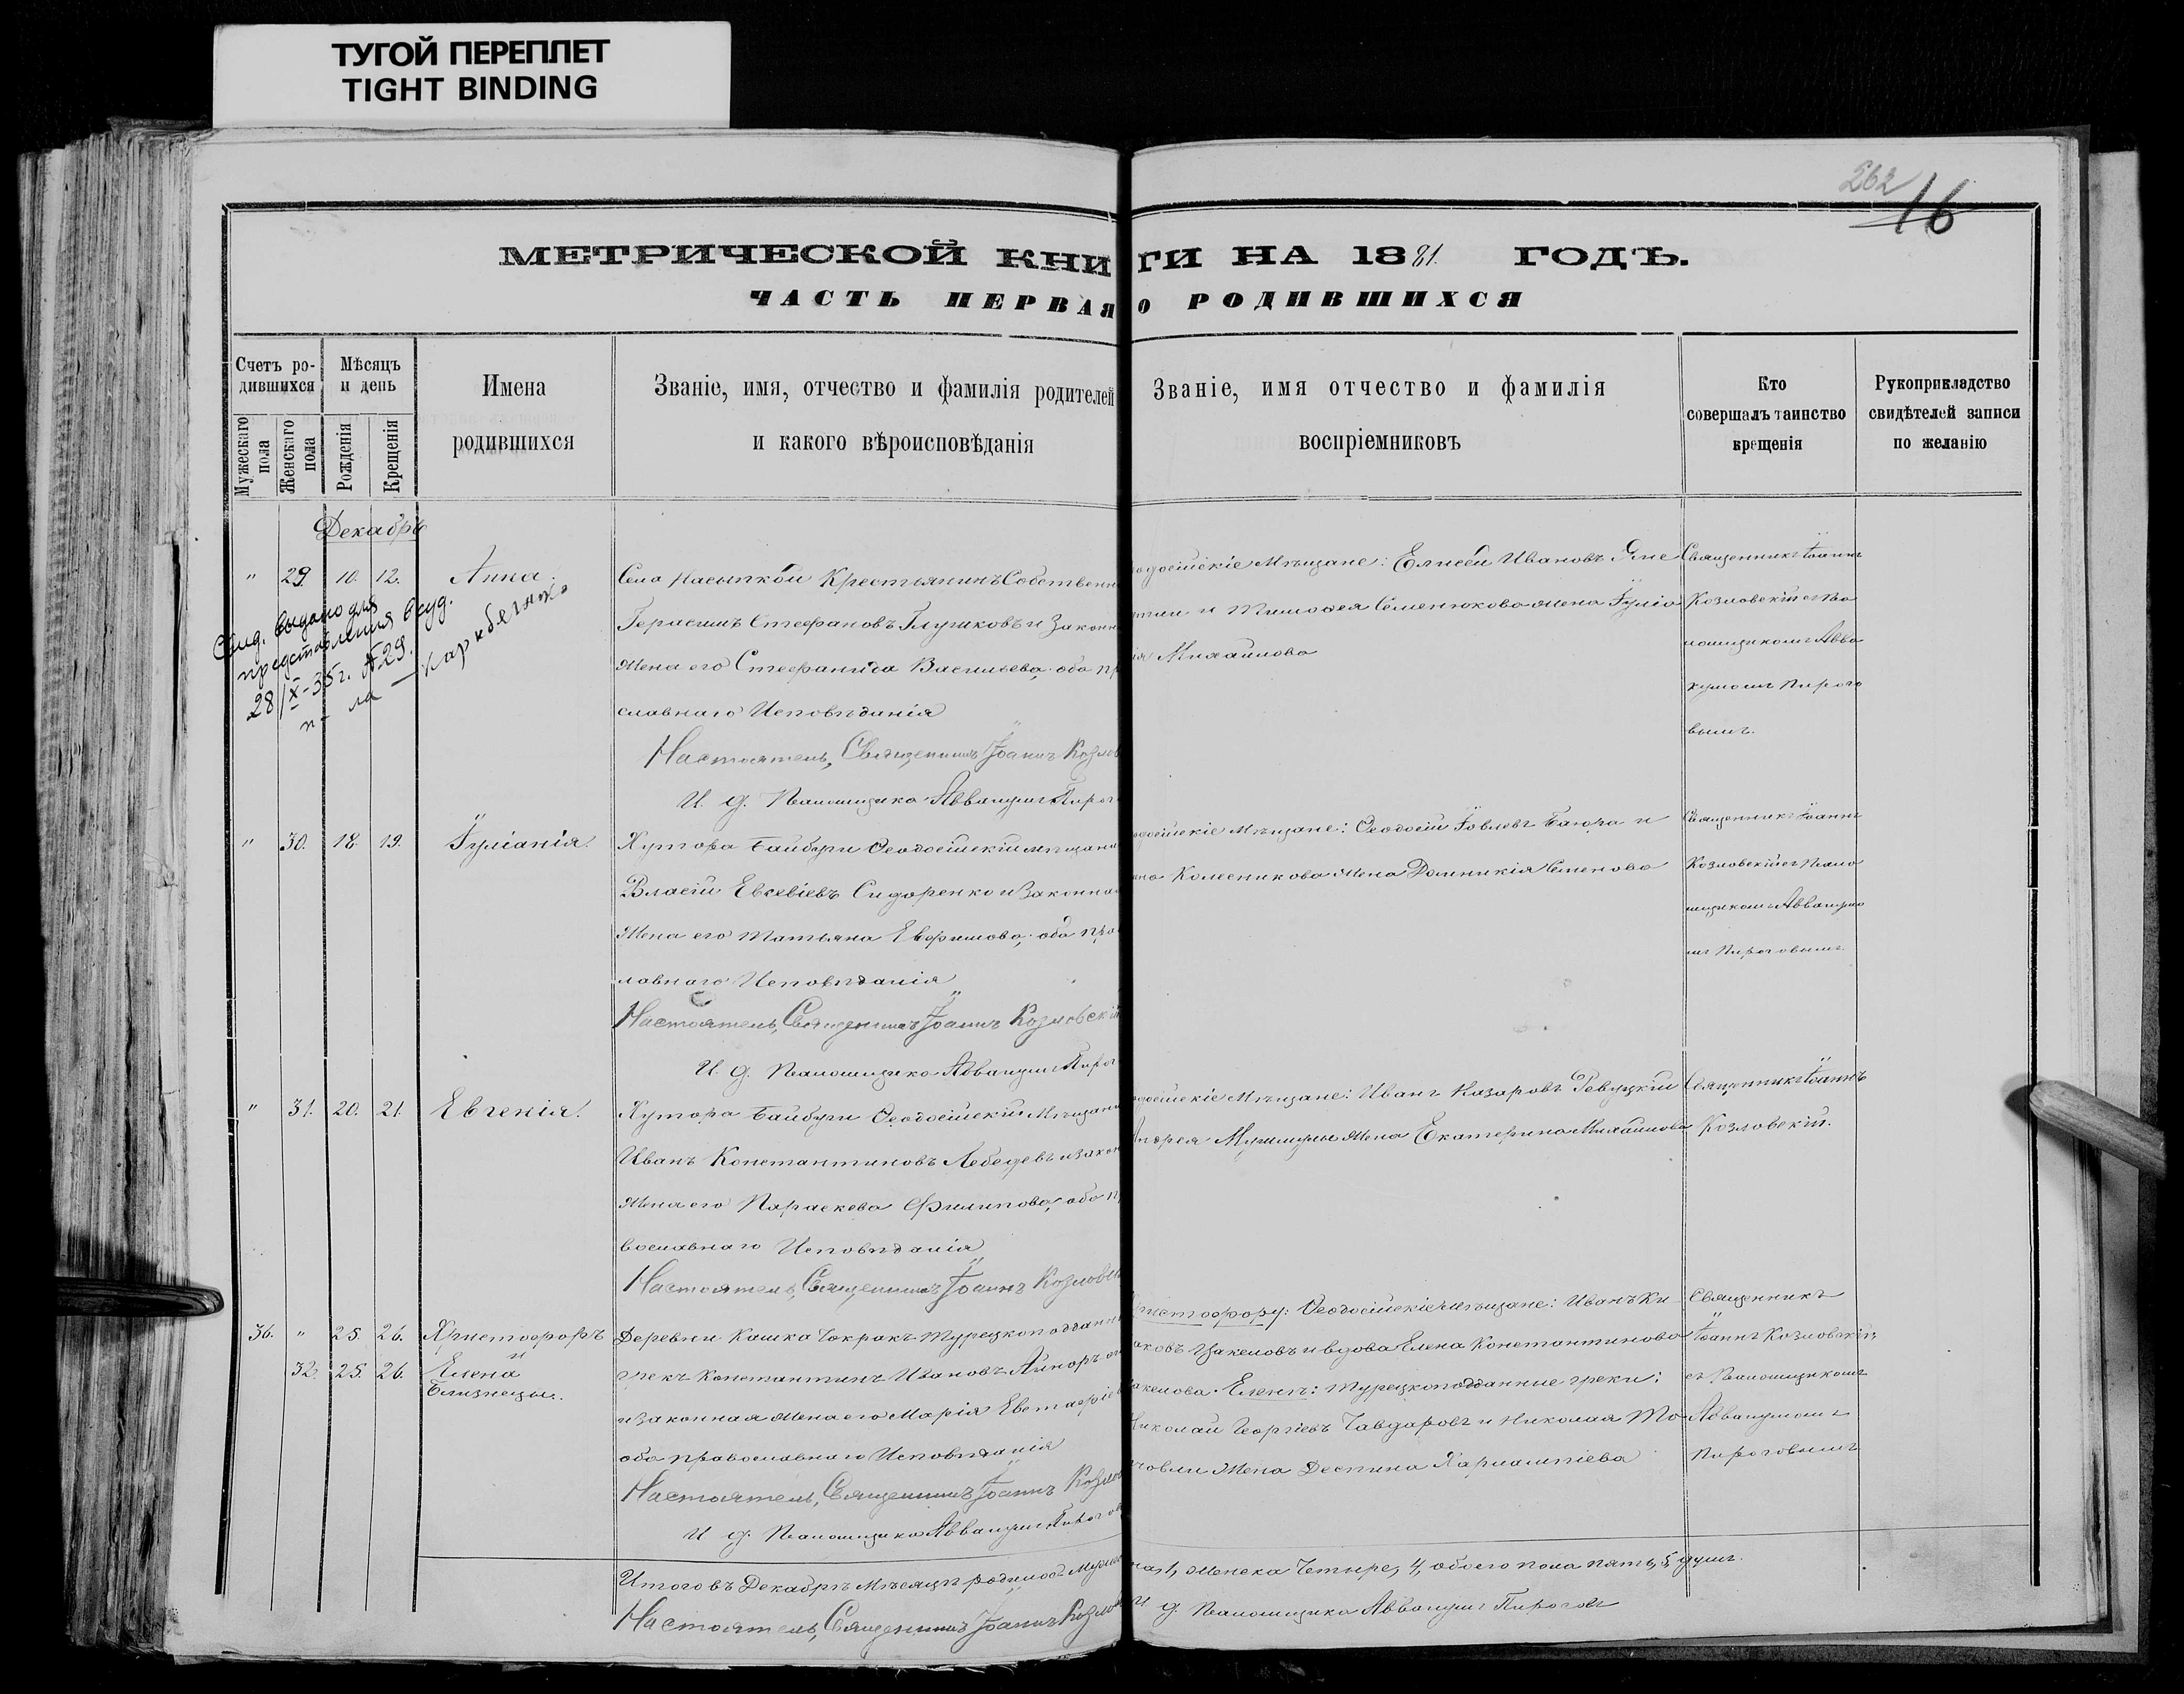 ТУГОЙ ПЕРЕПЛЕТ
TIGHT BINDING
262
16
МЕТРИЧЕСКОЙ КНИГИ НА 1881 ГОДЪ.
ЧАСТЬ ПЕРВАЯ О РОДИВШИХСЯ
Счетъ родившихся
Мужескаго пола
Женскаго пола
Мѣсяцъ и день
Рожденія
Крещенія
Имена
родившихся
Званіе, имя, отчество и фамилія родителей
и какого вѣроисповѣданія
Званіе, имя отчество и фамилія
воспріемниковъ
Кто
совершалъ таинство
крещенія
Рукоприкладство
свидѣтелей записи
по желанію
Декабрь
" 29. 10. 12. Анна.
Свид. выдано для
представления в суд.
28/X-35г. №29.
Села Насыпкой Крестьянинъ Собственн
Герасимъ Стефановъ Глушковъ и Законн
жена его Стефанида Васильева, оба пр
славнаго Исповѣданія
Настоятель, Священникъ Іоаннъ Козлов
И. д. Псаломщика Аввакумъ Пирог
одосійскіе Мѣщане: Елисей Ивановъ
и Тимофея Семенюкова жена Іуліа
ія Михайлова
Священникъ Іоаннъ
Козловскій съ Пса
ломщикомъ Авва
кумомъ Пирого
вымъ.
" 30. 18. 19. Іуліанія.
Хутора Байбуги Ѳеодосійскій мѣщани
Власій Евсевіевъ Сидоренко и Законная
Жена его Татьяна Ефимова, оба пра
лавнаго Исповѣданія
Настоятель, Священникъ Іоаннъ Козловскій
И. д. Псаломщика Аввакумъ Пирог
одосійскіе Мѣщане: Ѳеодосій Іовлевъ и
Колесникова жена Домникія Семенова
Священникъ Іоаннъ
Козловскій съ Псало
мщикомъ Аввакумо
мъ Пироговымъ
" 31. 20. 21. Евгенія.
Хутора Байбуги Ѳеодосійскій Мѣщани
Иванъ Константиновъ Лебедевъ и закон
жена его Параскева Филипова, оба п
вославнаго Исповѣданія
Настоятель, Священникъ Іоаннъ Козловс
одосійскіе Мѣщане: Иванъ Назаровъ Ревуцкій
Андрея жена Екатерина Михайлова
Священникъ Іоаннъ
Козловскій.
36. " 25. 26. Христофоръ
и
32. 25. 26. Елена
Близнецы.
Деревни Кашка Чокракъ Турецкоподданн
грекъ Константинъ Ивановъ
и законная жена его Марія Евстафіе
оба православнаго Исповѣданія
Настоятель, Священникъ Іоаннъ Козлов
И. д. Псаломщика Аввакумъ Пирогов
ристофору: Ѳеодосійскіе мѣщане: Иванъ Ки
аковъ Цакеловъ и вдова Елена Константинова
акелова. Еленѣ: Турецкоподданные греки:
Николай Георгіевъ Чавдаровъ и Николая То
жена Деспина Харлампіева
Священникъ
Іоаннъ Козловскій
съ Псаломщикомъ
Аввакумомъ
Пироговымъ
Итого въ Декабрѣ Мѣсяцѣ родилось Мужес
ка 1, женска Четыре, 4, обоего пола пять, 5, душъ.
Настоятель, Священникъ Іоаннъ Козлов
И д. Псаломщика Аввакумъ Пироговъ